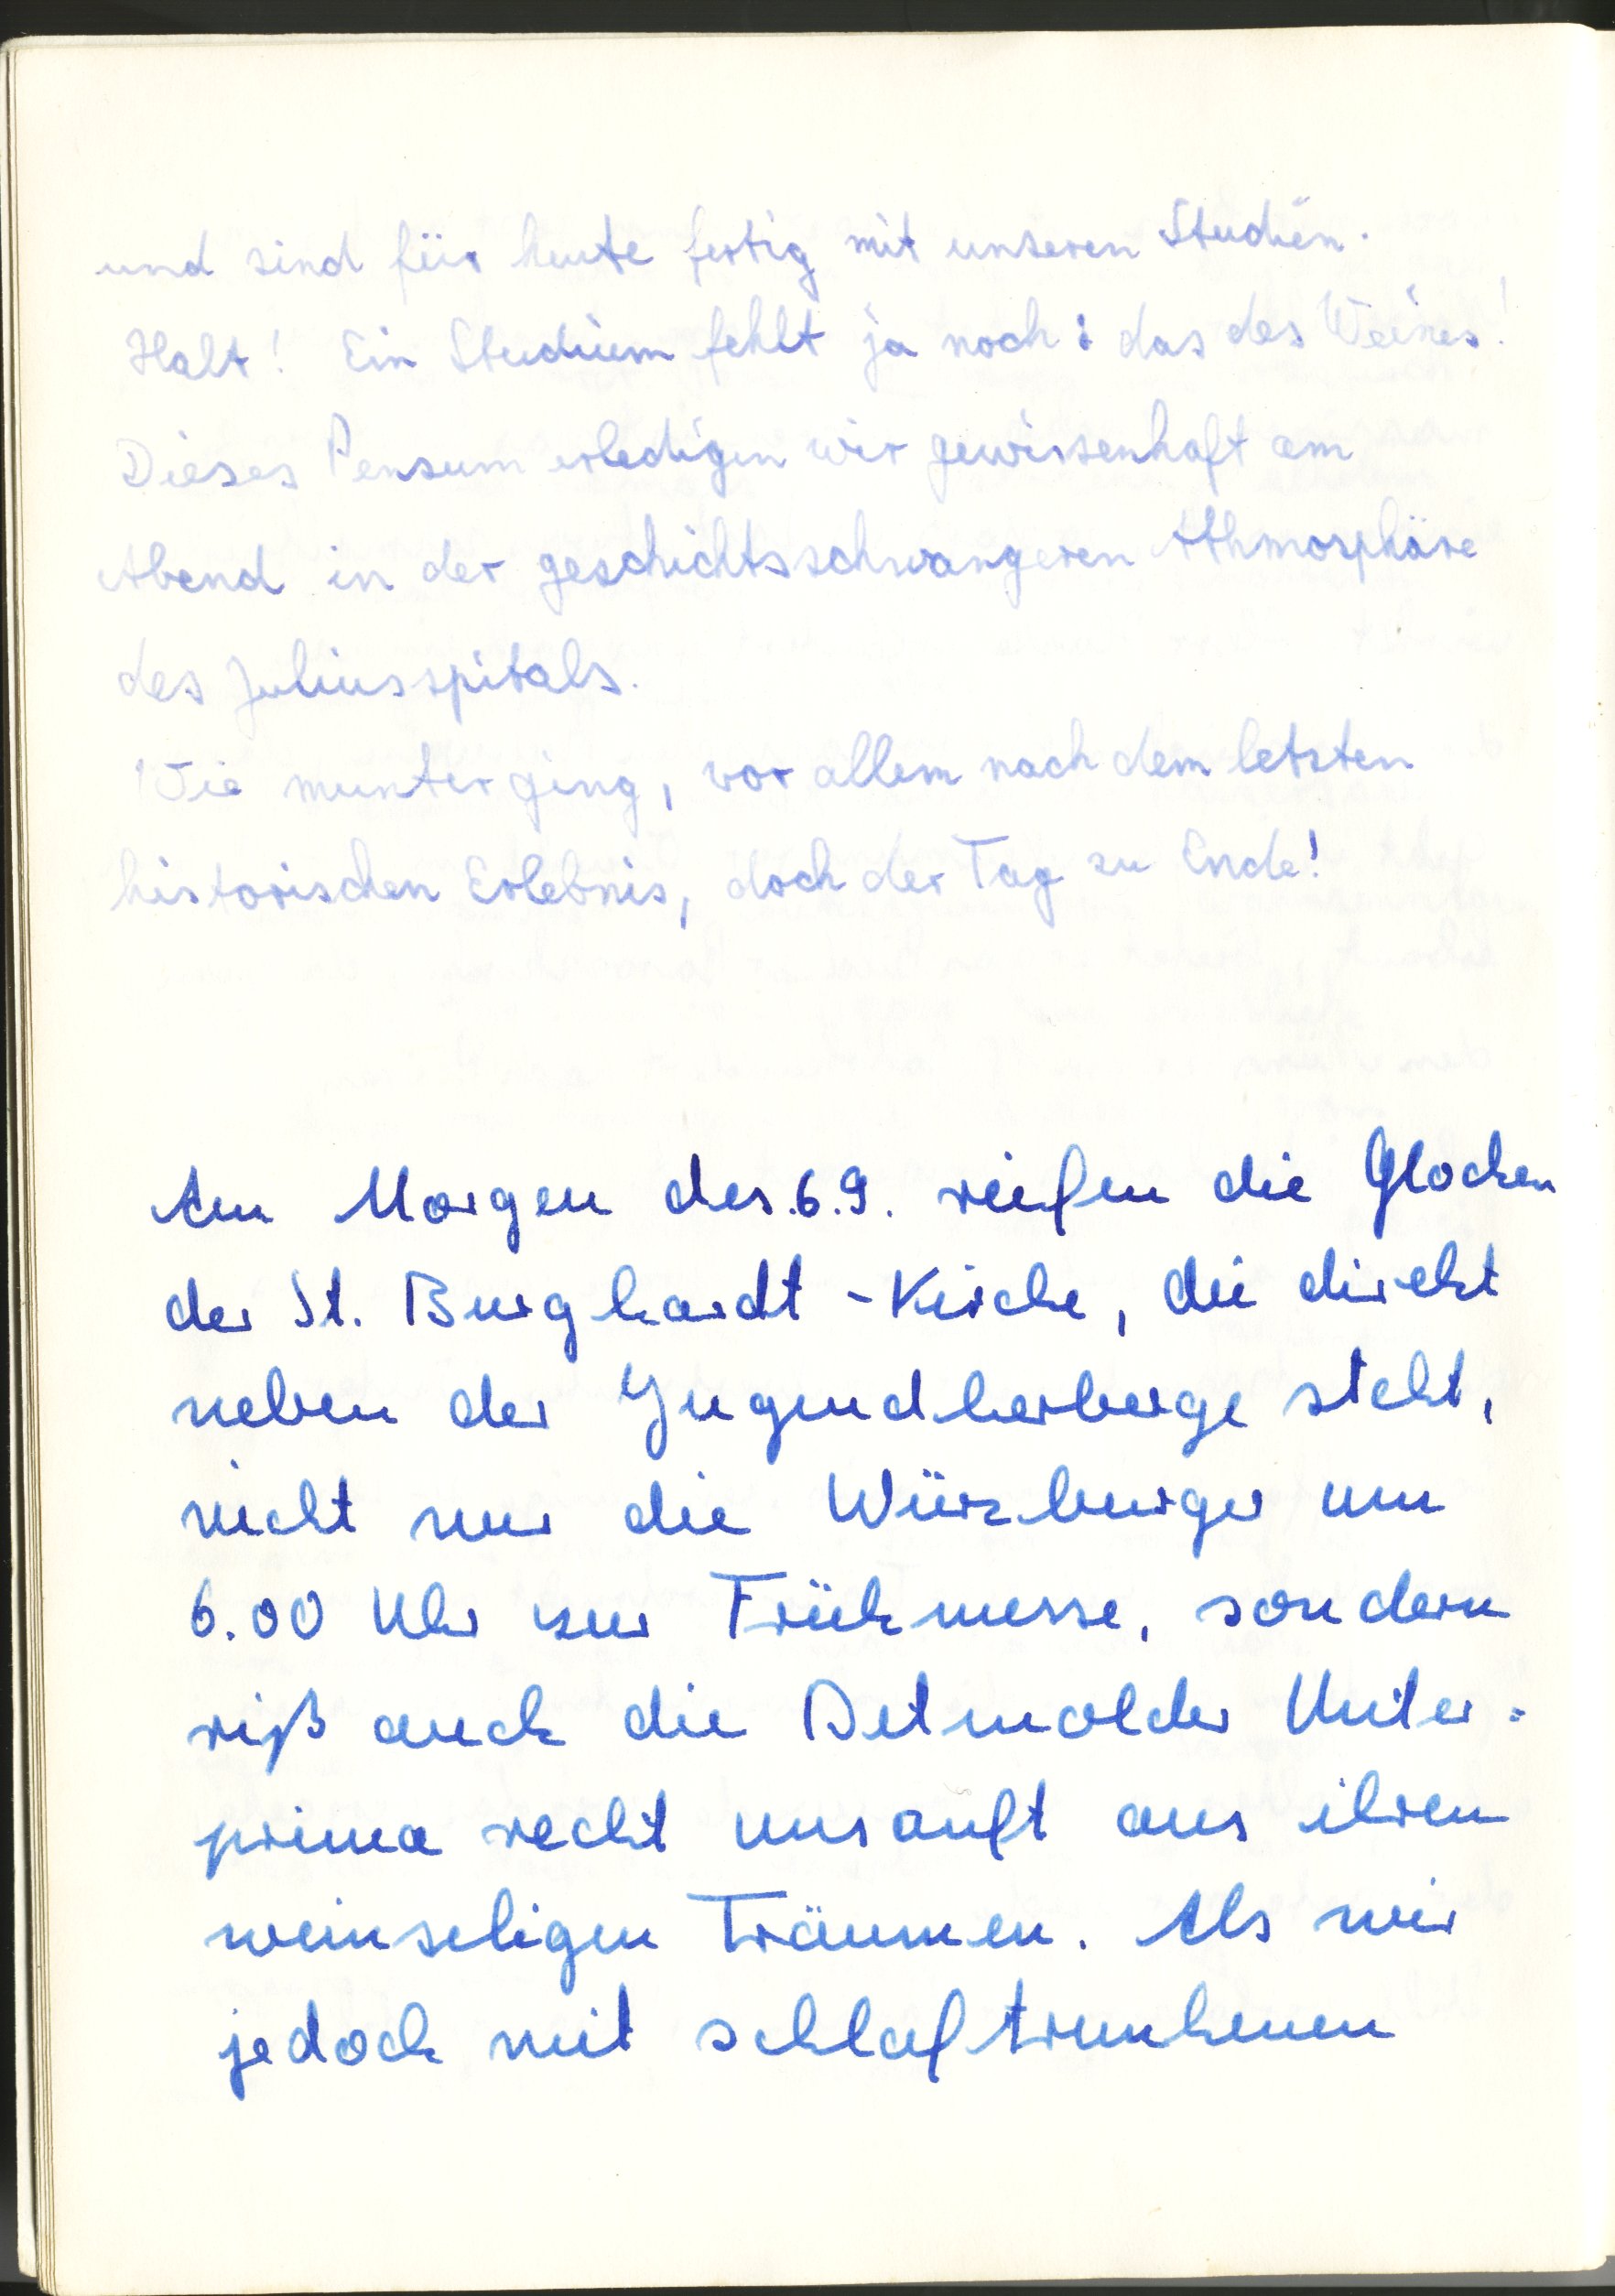 und sind für heute fertig mit unseren Studien.
Halt! Ein Studium fehlt ja noch: das des Weines!
Dieses Pensum erledigen wir gewissenhaft am
Abend in der geschichtsschwangeren Athmosphäre
des Juliusspitals.
Wie munter ging, vor allem nach dem letzten
historischen Erlebnis, doch der Tag zu Ende!
Am Morgen des 6.9. riefen die Glocken
der St. Burghardt-Kirche, die direkt
neben der Jugendherberge steht,
nicht nur die Würzburger um
6.00 Uhr zur Frühmesse, sondern
riß auch die Detmolder Unter-
prima recht unsanft aus ihren
weinseligen Träumen. Als wir
jedoch mit schlaftrunkenen